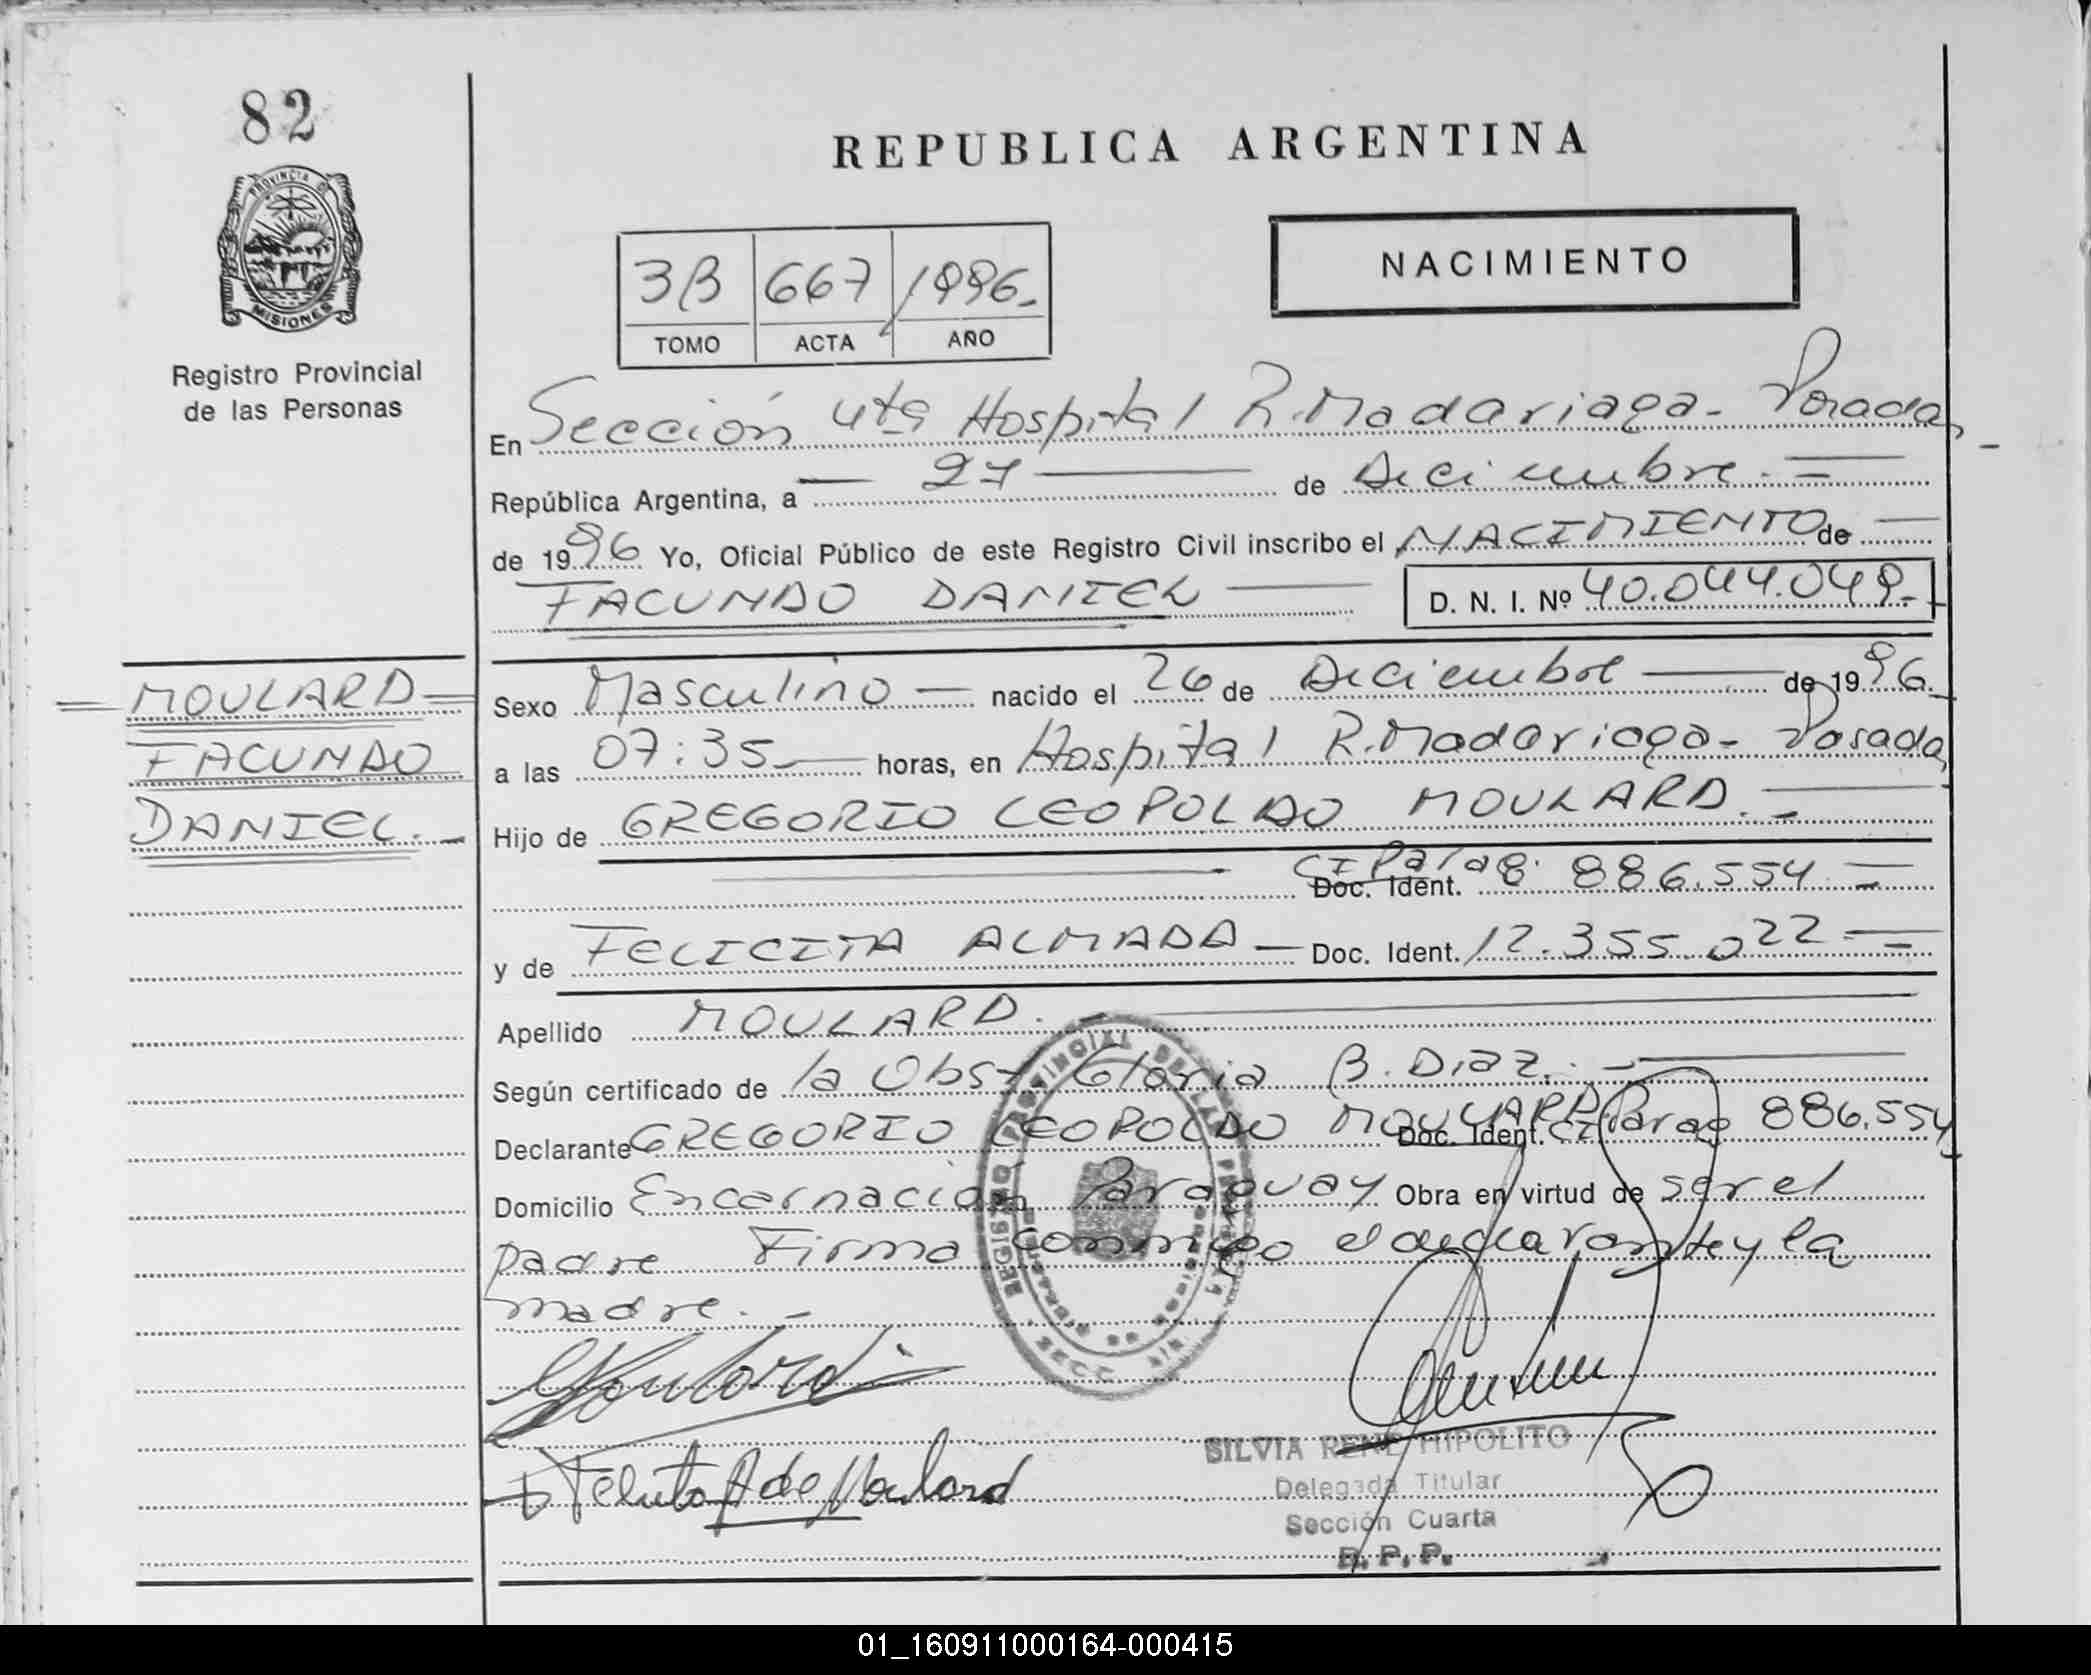 82
PROVINCIA DE
MISIONES
Registro Provincial
de las Personas
REPUBLICA ARGENTINA
3B 667 1996.
TOMO ACTA AÑO
NACIMIENTO
En Sección 4ta Hospital R. Madariaga - Posadas
República Argentina, a 27 de Diciembre.
de 1996 Yo, Oficial Público de este Registro Civil inscribo el NACIMIENTO de
FACUNDO DANIEL D. N. I. Nº 40.044.049.
MOULARD
FACUNDO
DANIEL.
Sexo Masculino nacido el 26 de Diciembre de 1996.
a las 07:35 horas, en Hospital R. Madariaga - Posadas
Hijo de GREGORIO LEOPOLDO MOULARD.
Doc. Ident. CI Parag. 886.554
y de FELICITA ALMADA Doc. Ident. 12.355.022
Apellido MOULARD.
Según certificado de la Obst. Gloria B. Diaz.
Declarante GREGORIO LEOPOLDO MOULARD Doc. Ident. CI Parag 886.554
Domicilio Encarnación Paraguay Obra en virtud de ser el
padre Firma conmigo el declarante y la
madre.
GMoulard
Felicita A de Moulard
REGISTRO PROVINCIAL DE LAS PERSONAS
SECC. 4ta
SILVIA RENE HIPOLITO
Delegada Titular
Sección Cuarta
R. P. P.
01_160911000164-000415